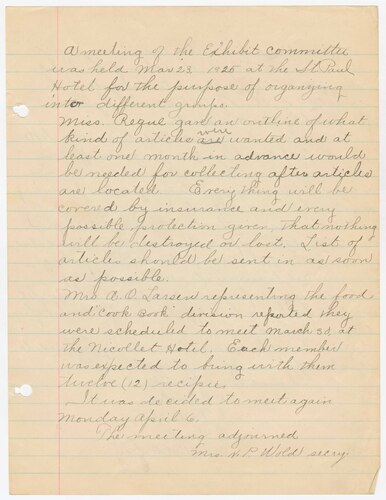 A meeting of the Exhibit committee
was held Mar 23 1925 at the St Paul
Hotel for the purpose of organizing
into different groups.
Miss Regue gav an outline of what
were
kind of articles are wanted and at
least one month in advance would
be needed for collecting after articles
are located. Everything will be
covered by insurance and every
possible protection given, that nothing
will be destroyed or lost. List of
articles should be sent in as soon
as possible.
Mrs. A. O. Larsen representing the food
and "Cook Book" division reported they
were scheduled to meet March 30 at
the Nicollet Hotel. Each member
was expected to bring with them
twelve (12) recipie.
It was decided to meet again
Monday April 6.
The meeting adjourned
Mrs. P. Wold secry.